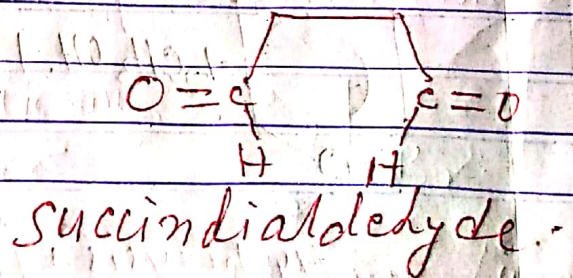 O=C C=O
H H
Succindialdehyde.